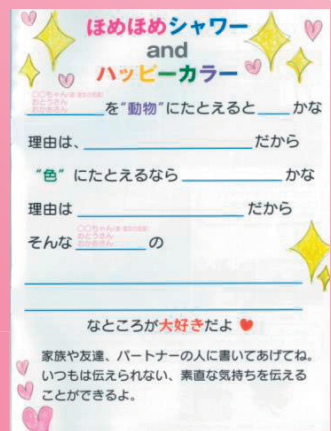 ほめほめシャワー
and
ハッピーカラー
おとうさん
おかあさん
を"動物"にたとえると かな
理由は、 だから
"色" にたとえるなら かな
理由は だから
おとうさん
おかあさん
そんな の
なところが大好きだよ
家族や友達、パートナーの人に書いてあげてね。
いつもは伝えられない、素直な気持ちを伝える
ことができるよ。